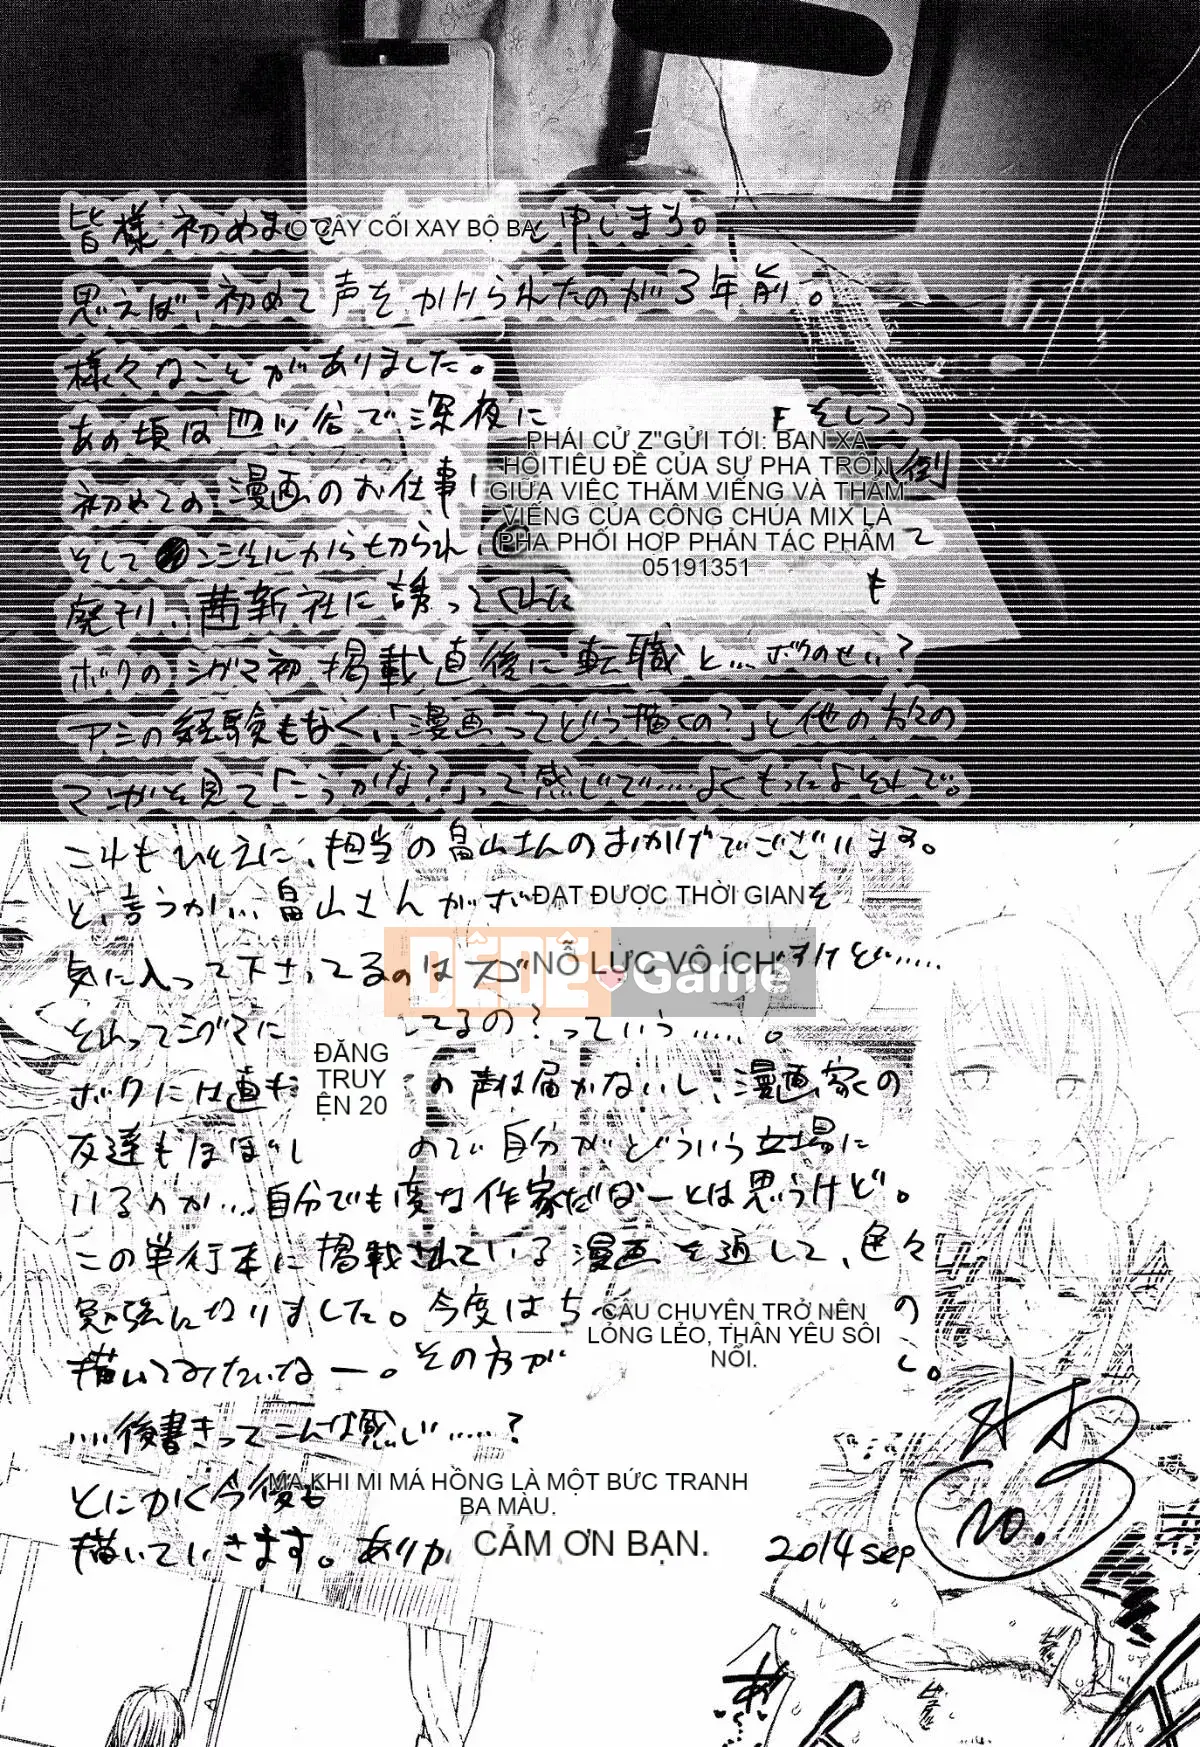 皆様初めま O CÂY CỐI XAY BỘ BA と申します。
思えば、初めて声をかけられたのが3年前。
様々なことがありました。
あの頃は四ツ谷で深夜に をしつつ
PHÁI CỬ Z"GỬI TỚI: BAN XÃ
HỘITIÊU ĐỀ CỦA SỰ PHA TRỘN
GIỮA VIỆC THĂM VIẾNG VÀ THĂM
VIẾNG CỦA CÔNG CHÚA MIX LÀ
PHA PHỐI HỢP PHẢN TÁC PHẨM
05191351
初めての漫画のお仕事 倒
そして ンジェルからも切られ、 て
廃刊、茜新社に誘って も
ボクのシグマ初掲載直後に転職と…ボクのせい?
アシの経験もなく、「漫画ってどう描くの?」と他の方々の
マンガを見て「こうかな?」って感じで……よくもったよそれで。
これもひとえに、担当の畠山さんのおかげでございます。
と、言うか…畠山さんがボ ĐẠT ĐƯỢC THỜI GIAN を
気に入って下さってるのは NỖ LỰC VÔ ÍCH すけど……
DÊDÊ Game
そ てシグマに してるの?っていう……。
ĐĂNG
TRUY
ỆN 20
ボクには直 の声は届かないし、漫画家の
友達もほぼ ので自分がどういう立場に
いるのか…自分でも変な作家だなーとは思うけど。
この単行本に掲載されている漫画を通して、色々
勉強になりました。今度は の
CÂU CHUYỆN TRỞ NÊN
LỎNG LẺO, THÂN YÊU SÔI
NỔI.
描いてみたいなー。その方が 。
…後書きってこんな感じ……?
とにかく今後も
MA KHI MI MÁ HỒNG LÀ MỘT BỨC TRANH
BA MÀU.
描いていきます。ありが CẢM ƠN BẠN.
2014 sep